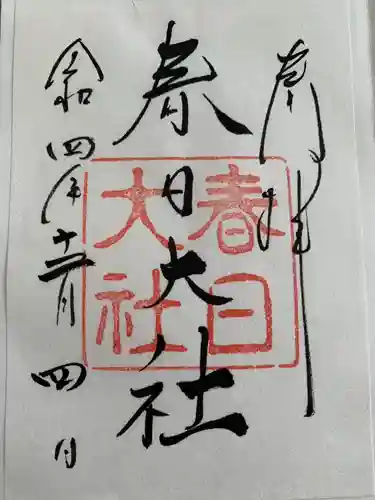 奉拝
春日大社
春日
大社
令和四年十二月四日